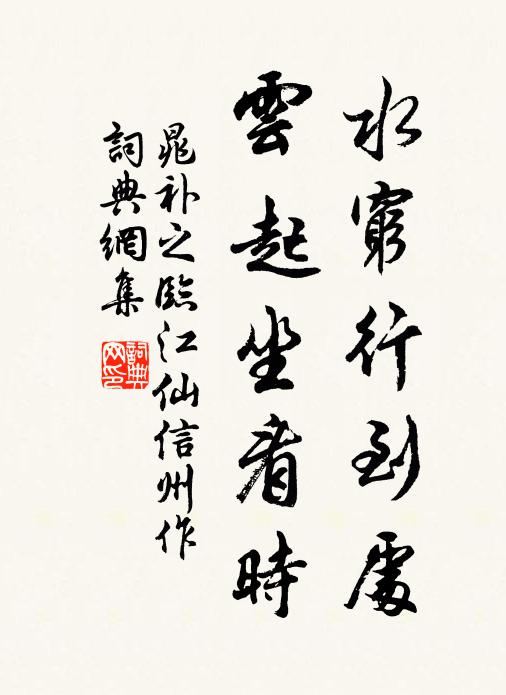 水窮行到處
雲起坐看時
晁补之臨江仙信州作
詞典網集
詞典网印